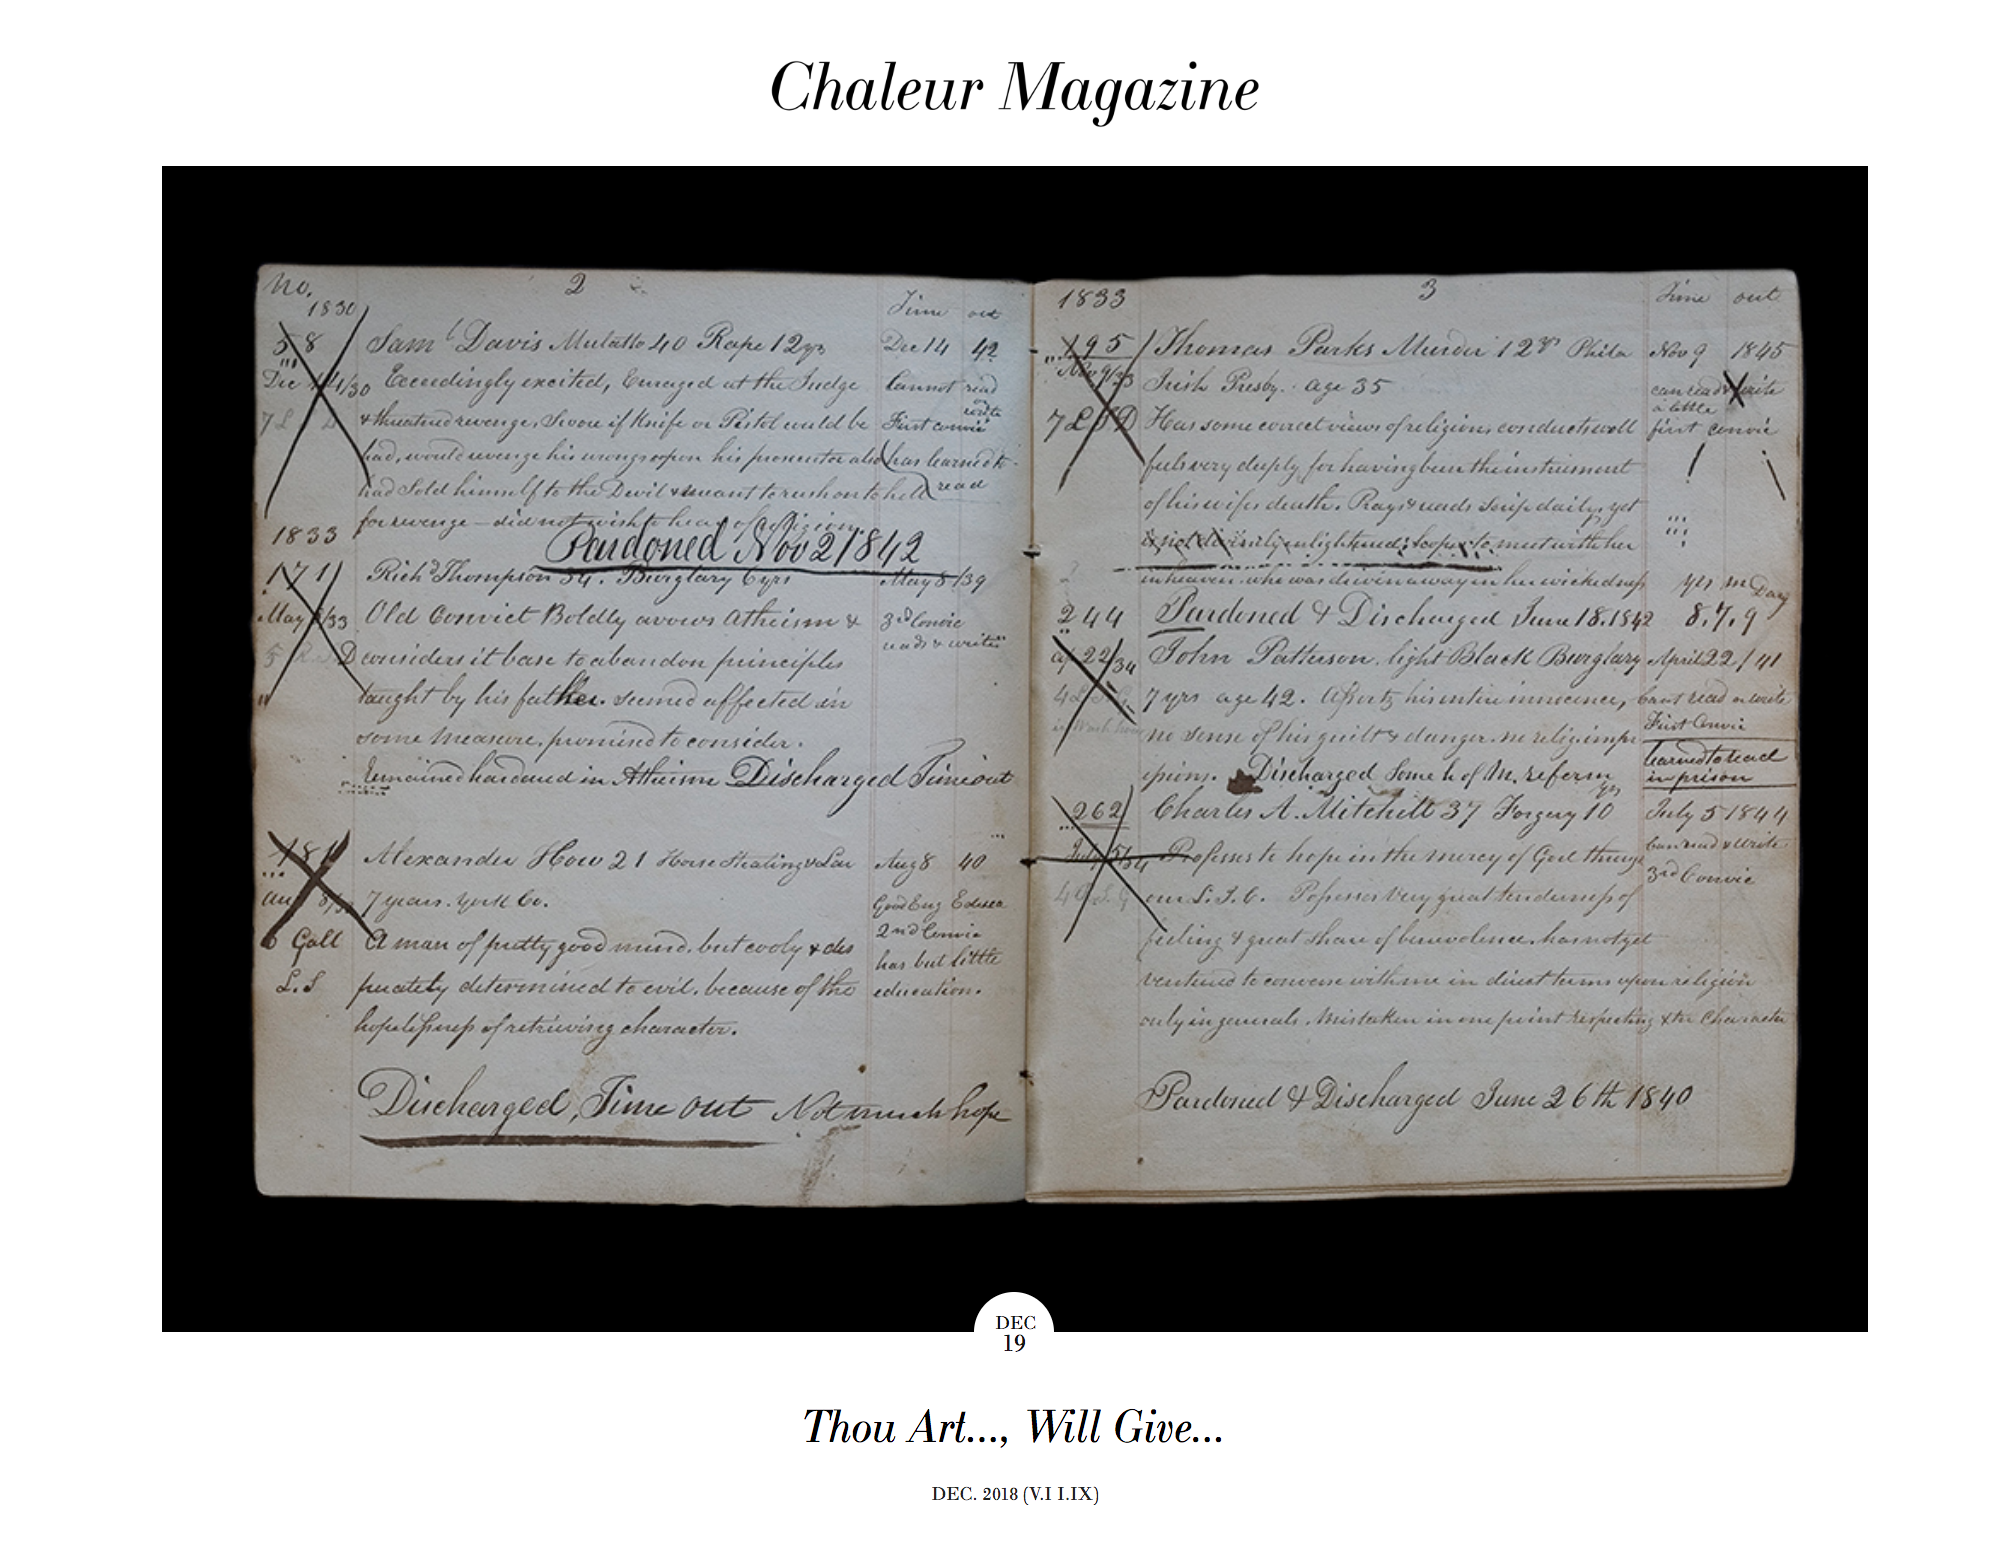 Chaleur Magazine
No. 2
1830 Time out
58 Saml Davis Mulatto 40 Rape 12 yrs Dec 14 42
Dec 14/30 Exceedingly excited, Enraged at the Judge Cannot read
or write
& threatened revenge, Swore if Knife or Pistol could be First convic
had, would revenge his wrongs upon his prosecutor also (has learned to
had Sold himself to the Devil & meant to rush on to hell read
for revenge – did not wish to hear of religion
1833 Pardoned Nov 21 1842
171 Richd Thompson 34. Burglary 6 yrs May 8/39
May 8/33 Old Convict Boldly avows Atheism & 3rd Convic
reads & writes
D considers it base to abandon principles
taught by his father. seemed affected in
some measure, promised to consider.
Remained hardened in Atheism Discharged Time out
181 Alexander How 21 Horse Stealing & Lar Aug 8 40
7 years. York Co. Good Eng Educa
2nd Convic
6 Gall A man of pretty good mind, but cooly & des
has but little
L.S perately determined to evil, because of the education.
hopelessness of retrieving character.
Discharged, Time out Not much hope
1833 3 Time out
195 Thomas Parks Murder 12 yrs Phila Nov 9 1845
Nov 9/33 Irish Presby. age 35 can read & write
a little
7 L S D Has some correct views of religion, conducts well first convic
feels very deeply for having been the instrument
of his wifes death. Prays & reads Scrip daily, yet
is not divinely enlightened; hopes to meet with her
in heaven who was driven away in her wickedness yrs m Day
244 Pardoned & Discharged June 18. 1842 8. 7. 9
Ap 22/34 John Patterson. light Black Burglary April 22/41
7 yrs age 42. Asserts his entire innocence, Cant read or write
First Convic
no sense of his guilt & danger. no relig. impr
learned to read
essions. Discharged Some h of M. reform in prison
yrs
262 Charles A. Mitchell 37 Forgery 10 July 5 1844
July 5/34 Professes to hope in the mercy of God through Can read & write
3rd Convic
our L. J. C. Possesses very great tenderness of
feeling & great share of benevolence. has not yet
ventured to converse with me in direct terms upon religion
only in generals. Mistaken in one point respecting Character
Pardoned & Discharged June 26th 1840
DEC
19
Thou Art..., Will Give...
DEC. 2018 (V.I I.IX)